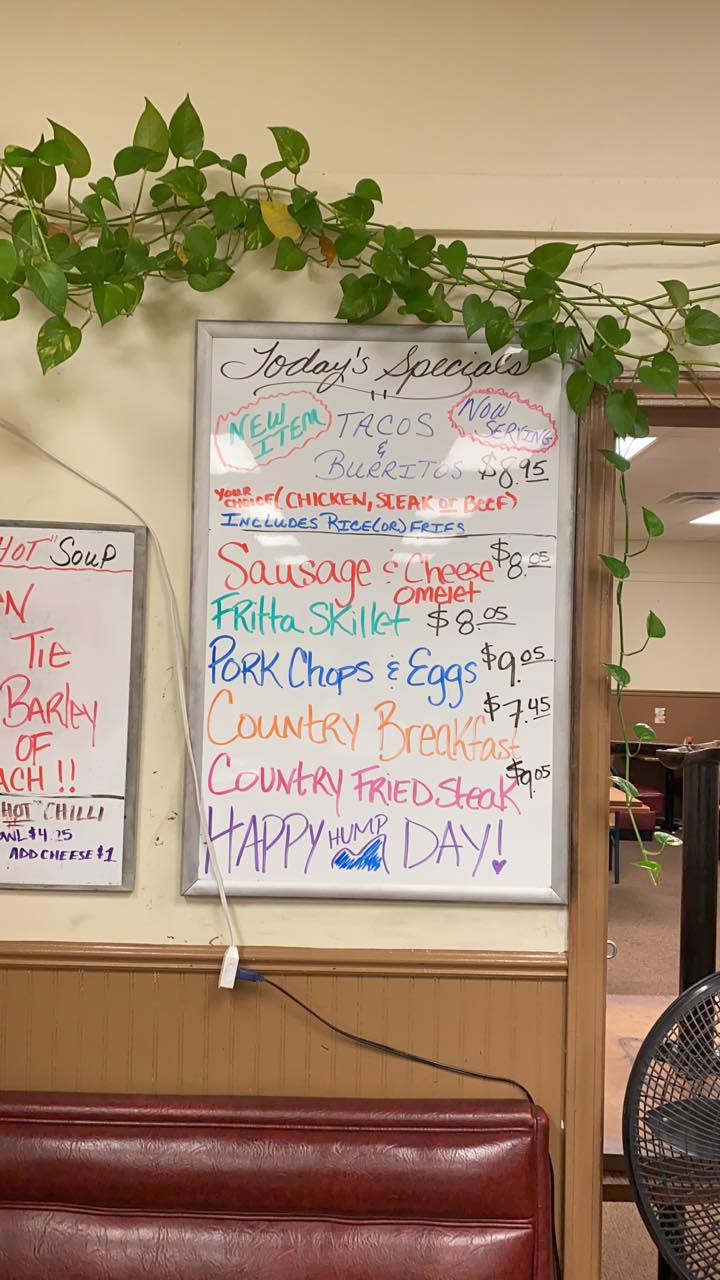 Today's Specials
NEW ITEM
TACOS
&
BURRITOS $8.95
NOW SERVING
YOUR CHOICE (CHICKEN, STEAK OR BEEF)
INCLUDES RICE (OR) FRIES
Sausage & Cheese Omelet $8.05
Fritta Skillet $8.05
PORK Chops & Eggs $9.05
COUNTRY Breakfast $7.45
COUNTRY FRIED Steak $9.05
HAPPY HUMP DAY!
HOT" SOUP
N
TIE
BARLEY
OF
ACH !!
HOT" CHILLI
WL $4.25
ADD CHEESE $1